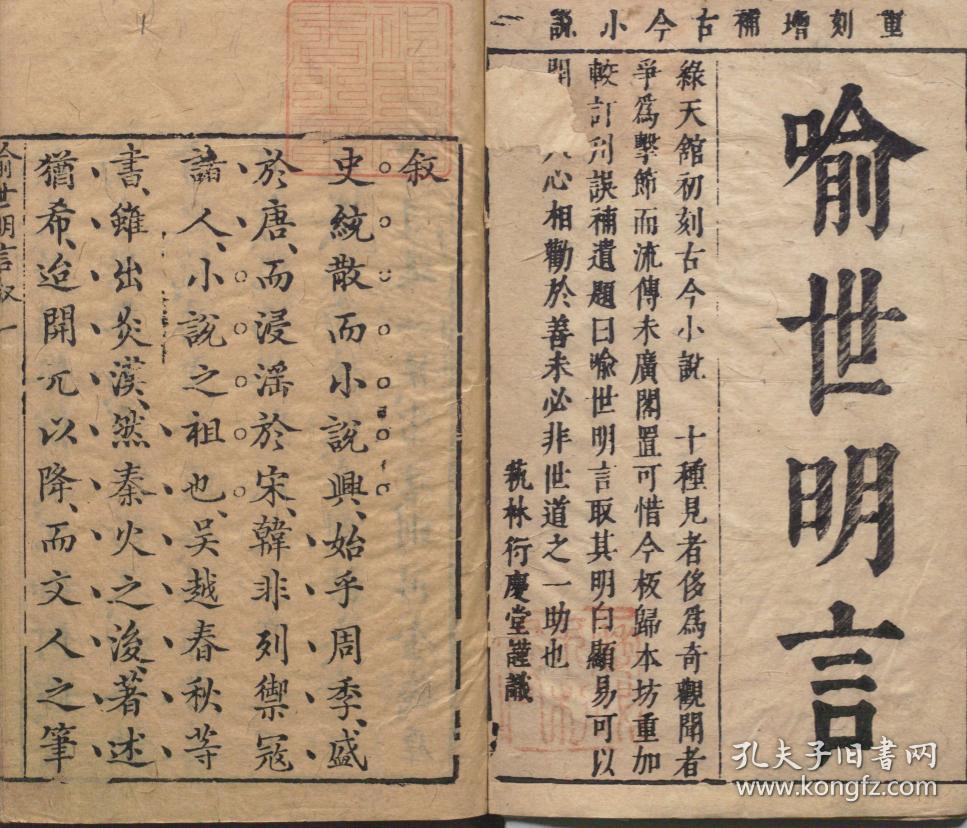 重刻增補古今小說
喻世明言
綠天館初刻古今小說 十種見者侈爲奇觀聞者
爭爲擊節而流傳未廣閣置可惜今板歸本坊重加
較訂刋誤補遺題曰喻世明言取其明白顯易可以
開 人心相勸於善未必非世道之一助也
蓺林衍慶堂謹識
叙
史統散而小說興、始乎周季、盛
於唐、而浸淫於宋、韓非列禦冦
諸人、小說之祖也、吴越春秋等
書、雖出炎漢、然秦火之後、著述
猶希、迨開元以降、而文人之筆
喻世明言叙 一
孔夫子旧书网
www.kongfz.com